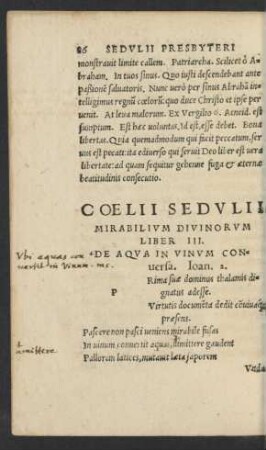 86 SEDVLII PRESBYTERI
monstrauit limite callem. Patriarcha. Scilicet ô A-
braham. In tuos sinus. Quo iusti descendebant ante
passionē saluatoris. Nunc uerò per sinus Abrahā in-
telligimus regnū cœlorū: quo duce Christo et ipse per
uenit. At leua malorum. Ex Vergilio 6. Aeneid. est
sumptum. Est hæc uoluntas, id est, esse debet. Bona
libertas. Quia quemadmodum qui facit peccatum, ser
uus est peccati: ita ediuerso qui seruit Deo liber est uera
libertate: ad quam sequitur gehenne fuga & æternæ
beatitudinis consecutio.
COELII SEDVLII
MIRABILIVM DIVINORVM
LIBER III.
DE AQVA IN VINVM CON
uersa. Ioan. 2.
Vbi aquas con
P
Rima suæ dominus thalamis di-
gnatus adesse.
Virtutis documēta dedit cōuiuaq;
præsens.
Pascere non pasci ueniens mirabile fusas
In uinum conuertit aquas, dimittere gaudent
Pallorum latices, mutauit læta saporem
Vnda